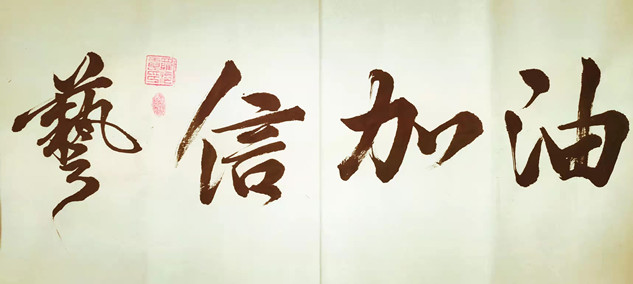 藝信加油